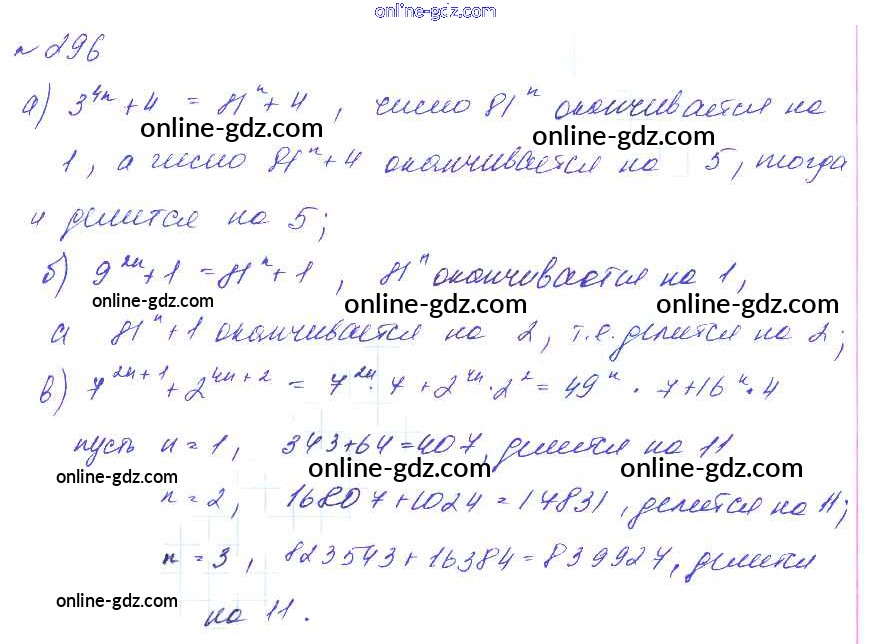 online-gdz.com
№ 296
а) 3^{4n} + 4 = 81^n + 4, число 81^n оканчивается на
online-gdz.com online-gdz.com
1, а число 81^n + 4 оканчивается на 5, тогда
и делится на 5;
б) 9^{2n} + 1 = 81^n + 1, 81^n оканчивается на 1,
online-gdz.com online-gdz.com online-gdz.com
а 81^n + 1 оканчивается на 2, т.е. делится на 2;
в) 7^{2n+1} + 2^{4n+2} = 7^{2n} · 7 + 2^{4n} · 2^2 = 49^n · 7 + 16^n · 4
пусть n = 1, 343 + 64 = 407, делится на 11
online-gdz.com online-gdz.com online-gdz.com
n = 2, 16807 + 1024 = 17831, делится на 11;
n = 3, 823543 + 16384 = 839927, делится
online-gdz.com
на 11.